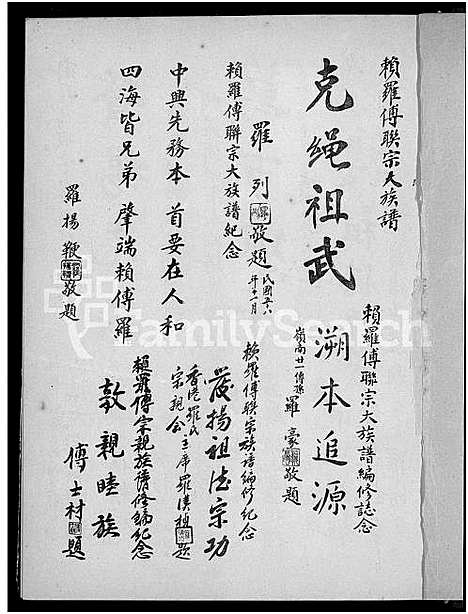 賴羅傅聯宗大族譜
克繩祖武
羅列敬題
民國五六年十一月
賴羅傅聯宗大族譜紀念
中興先務本 首要在人和
四海皆兄弟 肇端賴傅羅
羅揚鞭敬題
賴羅傅聯宗大族譜編修誌念
溯本追源
嶺南廿一傳孫羅豪敬題
賴羅傅聯宗族譜編修紀念
發揚祖德宗功
香港羅氏宗親會主席羅漢題
賴羅傅宗親族譜修編紀念
敦親睦族
傅士材題
FamilySearch